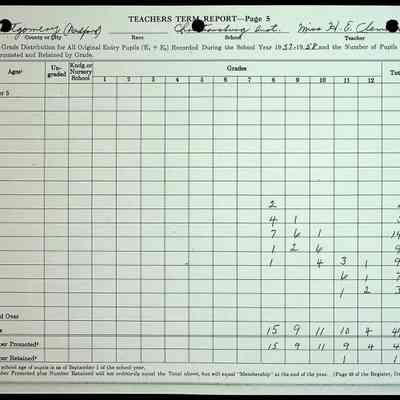 TEACHERS TERM REPORT—Page 5
(Radford) Miss H. E.
County or City Race School Teacher
Grade Distribution for All Original Entry Pupils (E₁ + E₂) Recorded During the School Year 1957-1958 and the Number of Pupils
Promoted and Retained by Grade.
Ages¹ Un-graded Kndg. or Nursery School Grades
1 2 3 4 5 6 7 8 9 10 11 12
5
2
4 1
7 6 1
1 2 6
1 4 3 1
6 1
1 2
Over
15 9 11 10 4
Promoted² 15 9 11 9 4
Retained² 1 1
school age of pupils is as of September 1 of the school year.
Promoted plus Number Retained will not ordinarily equal the Total above, but will equal "Membership" at the end of the year.